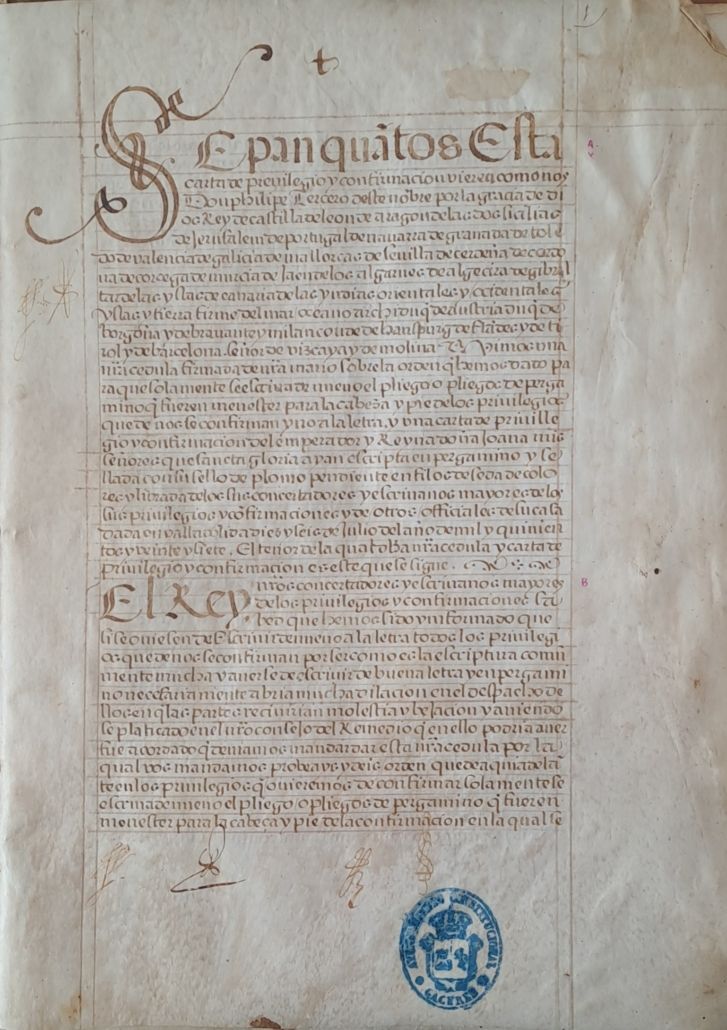 1
Sepan quãtos Esta
carta de previlegio y confirmacion vieren como nos
Don philipe Tercero deste nõbre por la gracia de di
os Rey de castilla de leon de aragon de las dos sicilias
de Jerusalem de portugal de navarra de granada de tole
do de valencia de galicia de mallorcas de sevilla de cerdeña de cordo
va de corcega de murcia de Jaen de los algarves de algecira de gibral
tar de las yslas de canaria de las yndias orientales y ocidentales
yslas y tierra firme del mar oceano archiduq̃ de austria duq̃ de
borgoña y de bravante y milan conde de hauspurg de flãdes y de ti
rol y de barcelona. señor de vizcaya y de molina. Vimos una
nr̃a cedula firmada de nr̃a mano sobre la orden q̃ hemos dado pa
ra que solamente se escriva de nuevo el pliego o pliegos de perga
mino q̃ fueren menester para la cabeza y pie de los privilegios
que de nos se confirman y no a la letra, y una carta de privile
gio y confirmacion del emperador y Reyna doña Joana mis
señores que sancta gloria ayan escripta en pergamino y se
llada con su sello de plomo pendiente en filos de seda de colo
res y librada de los sus concertadores y escrivanos mayores de los
sus privilegios y cõfirmaciones y de otros officiales de su casa
dada en valladolid a diez y seis de Julio del año de mil y quinien
tos y veinte y siete. El tenor de la qual dha nr̃a cedula y carta de
privilegio y confirmacion es este que se sigue.
El Rey, nr̃os concertadores y escrivanos mayores
de los privilegios y confirmaciones sa
bed que hemos sido ynformado que
si se oviesen de Escrivir de nuevo a la letra todos los privilegi
os que de nos se confirman por ser como es la escriptura comũ
mente mucha y averse de escrivir de buena letra y en pergami
no necesariamente abria mucha dilacion en el despacho de
llos en q̃ las partes recivirian molestia y bejacion y aviendo
se platicado en el nr̃o consejo del Remedio q̃ en ello podria aver
fue acordado q̃ deviamos mandar dar esta nr̃a cedula por la
qual vos mandamos probeays y deis orden que de aqui adelã
te en los privilegios q̃ ovieremos de confirmar solamente se
escriva de nuevo el pliego o pliegos de pergamino q̃ fueren
menester para la cabeça y pie de la confirmacion en la qual se
CACERES